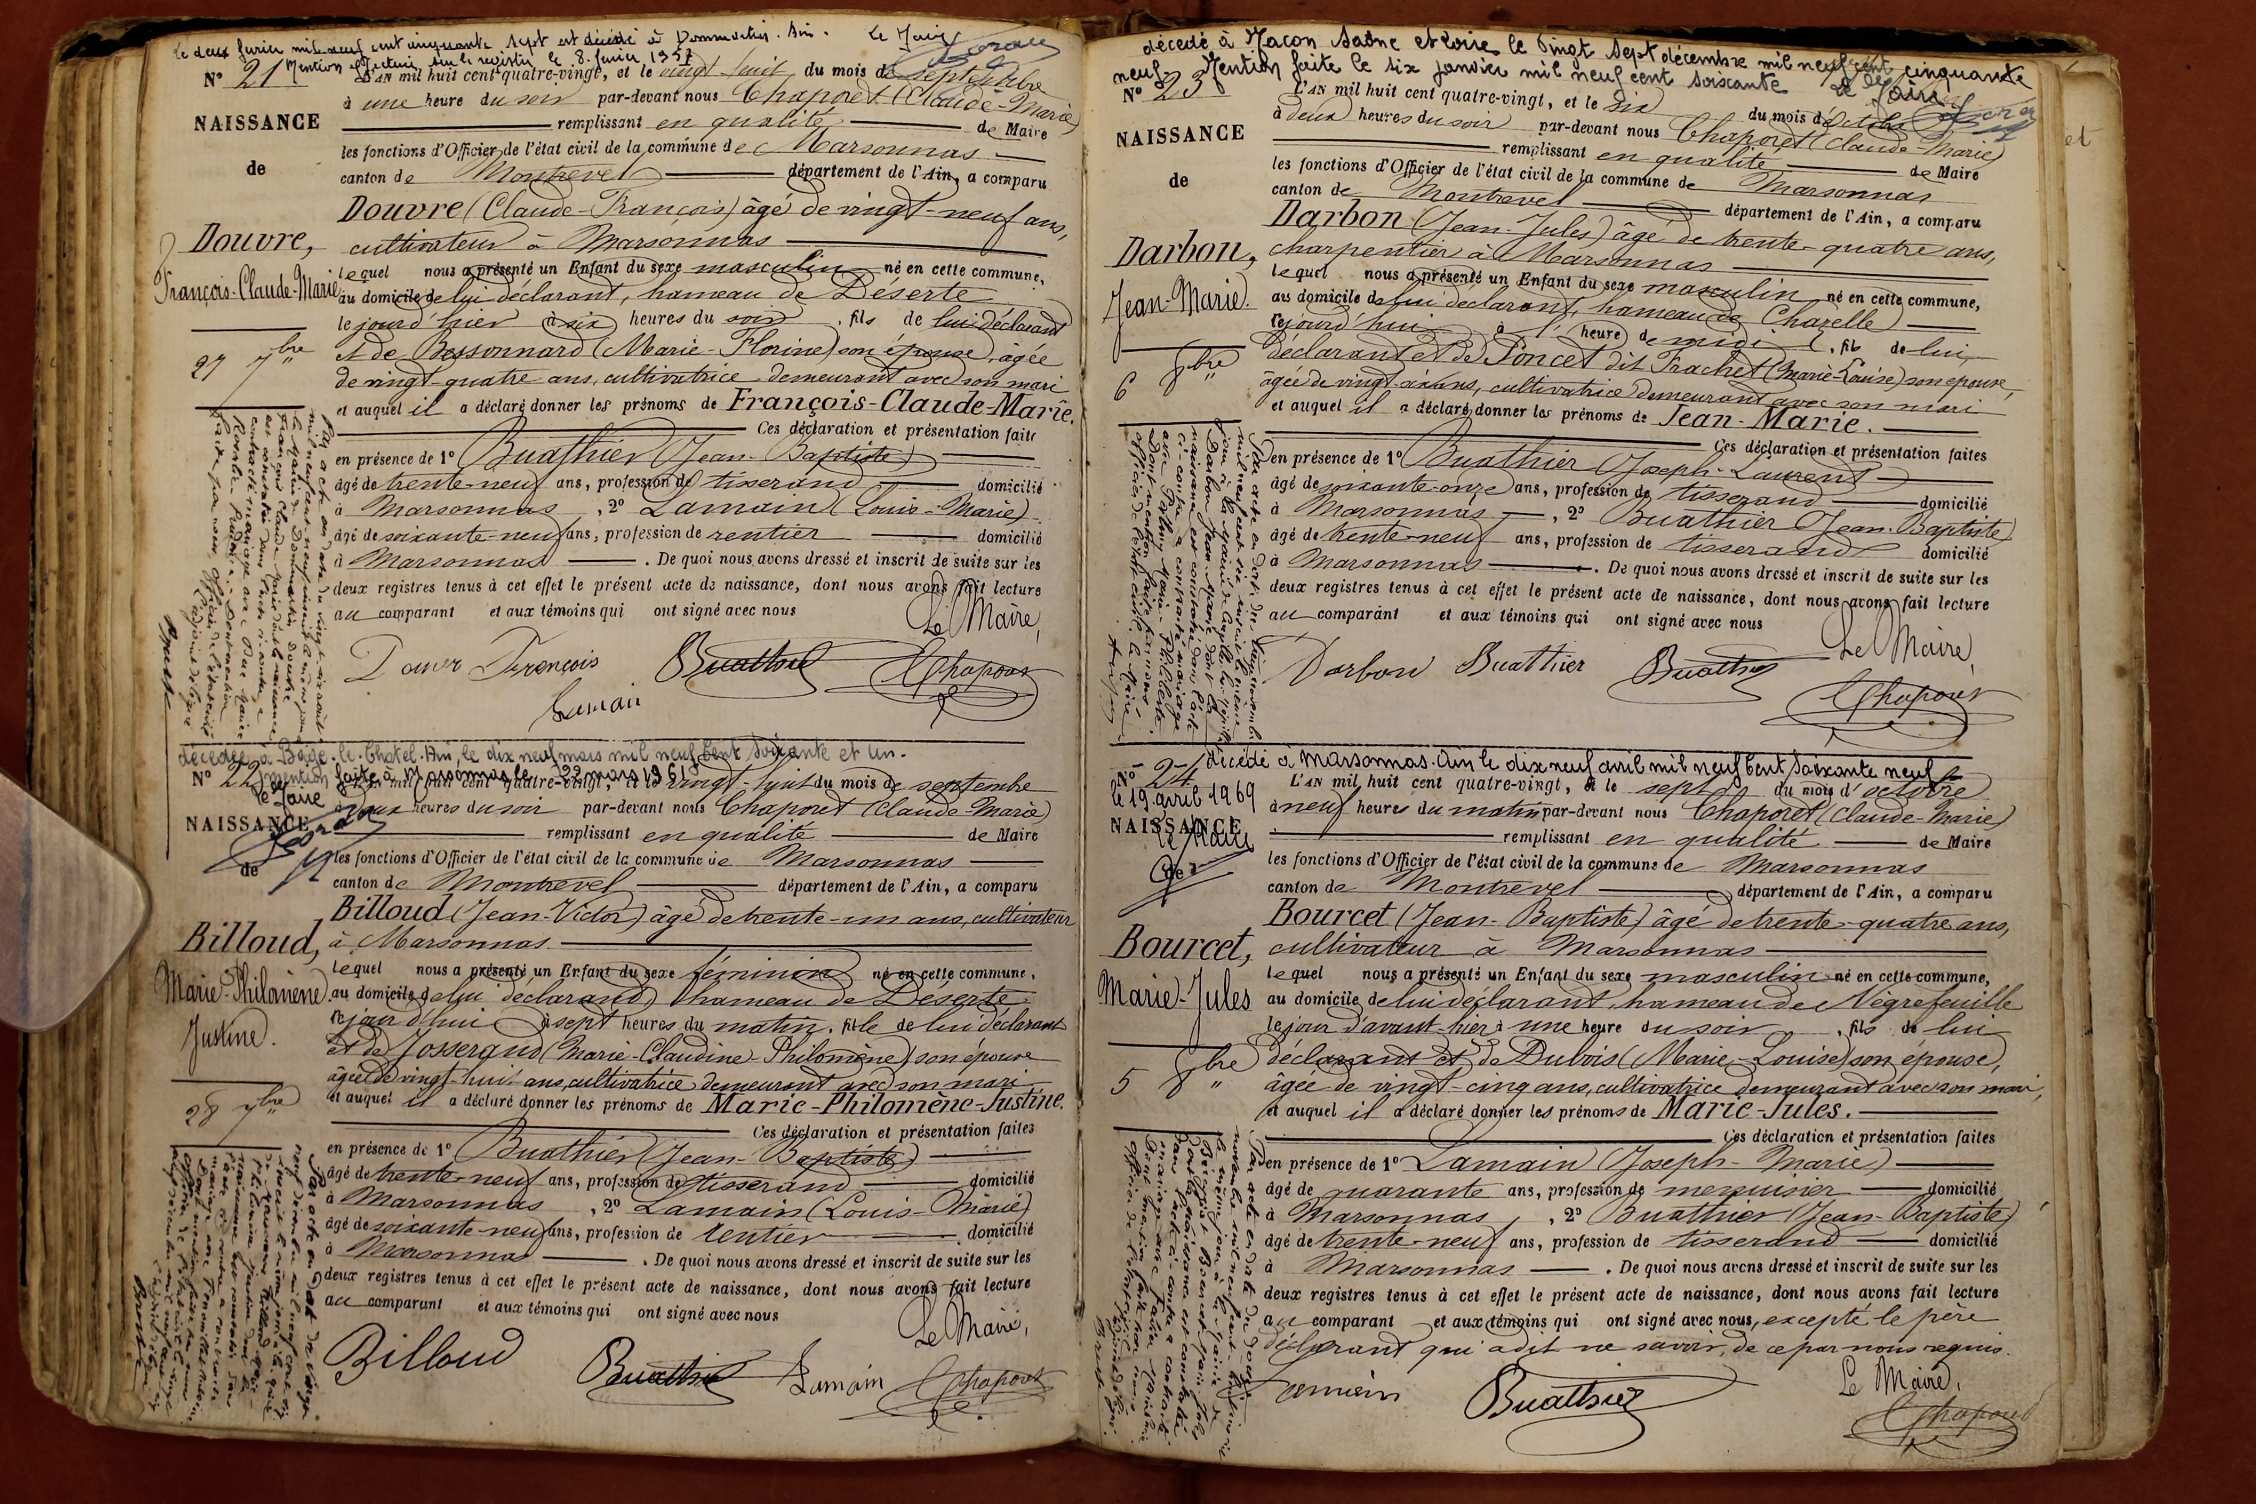 Le deux mil neuf cent cinquante sept est décédé à Dommartin. Ain. Le Maire
Mention effectuée sur le registre le 8. 1957
N° 21
L'AN mil huit cent quatre-vingt, et le vingt huit, du mois de septembre
à une heure du soir par-devant nous Chaporet (Claude-Marie)
NAISSANCE
remplissant en qualité de Maire
les fonctions d'Officier de l'état civil de la commune de Marsonnas
de
canton de Montrevel département de l'Ain, a comparu
Douvre (Claude-François) âgé de vingt-neuf ans,
Douvre,
cultivateur à Marsonnas
François-Claude-Marie
lequel nous a présenté un Enfant du sexe masculin né en cette commune,
au domicile de lui déclarant, hameau de Déserte
le jour d'hier à six heures du soir, fils de lui déclarant
27 7bre
et de Bessonnard (Marie-Florine) son épouse, âgée
de vingt-quatre ans, cultivatrice demeurant avec son mari
et auquel il a déclaré donner les prénoms de François-Claude-Marie.
Ces déclaration et présentation faites
en présence de 1° Buathier (Jean-Baptiste)
âgé de trente-neuf ans, profession de tisserand domicilié
à Marsonnas, 2° Lamain (Louis-Marie)
âgé de soixante-neuf ans, profession de rentier domicilié
à Marsonnas. De quoi nous avons dressé et inscrit de suite sur les
deux registres tenus à cet effet le présent acte de naissance, dont nous avons fait lecture
au comparant et aux témoins qui ont signé avec nous
Le Maire,
Douvr François Buathier Chaporet
Lamain
décédée à Bâgé-le-Chatel. Ain, le dix neuf mars mil neuf cent soixante et un.
mention faite à Marsonnas le 22 mars 1961
Le Maire
N° 22
L'AN mil huit cent quatre-vingt, et le vingt-huit du mois de septembre
à deux heures du soir par-devant nous Chaporet (Claude-Marie)
NAISSANCE
remplissant en qualité de Maire
de
les fonctions d'Officier de l'état civil de la commune de Marsonnas
canton de Montrevel département de l'Ain, a comparu
Billoud (Jean-Victor) âgé de trente-un ans, cultivateur
Billoud,
à Marsonnas
Marie-Philomène
Justine.
lequel nous a présenté un Enfant du sexe féminin né en cette commune,
au domicile de lui déclarant, hameau de Déserte
le jour d'hui à sept heures du matin, fille de lui déclarant
et de Josserand (Marie-Claudine-Philomène) son épouse
âgée de vingt-huit ans, cultivatrice demeurant avec son mari
28 7bre
et auquel il a déclaré donner les prénoms de Marie-Philomène-Justine.
Ces déclaration et présentation faites
en présence de 1° Buathier (Jean-Baptiste)
âgé de trente-neuf ans, profession de tisserand domicilié
à Marsonnas, 2° Lamain (Louis-Marie)
âgé de soixante-neuf ans, profession de rentier domicilié
à Marsonnas. De quoi nous avons dressé et inscrit de suite sur les
deux registres tenus à cet effet le présent acte de naissance, dont nous avons fait lecture
au comparant et aux témoins qui ont signé avec nous
Le Maire,
Billoud Buathier Lamain Chaporet
décédé à Macon Saône et Loire le vingt sept décembre mil neuf cent cinquante
neuf. Mention faite le six janvier mil neuf cent soixante Le Maire
N° 23
L'AN mil huit cent quatre-vingt, et le six du mois d'octobre
à deux heures du soir par-devant nous Chaporet (Claude-Marie)
NAISSANCE
remplissant en qualité de Maire
de
les fonctions d'Officier de l'état civil de la commune de Marsonnas
canton de Montrevel département de l'Ain, a comparu
Darbon (Jean-Jules) âgé de trente-quatre ans,
Darbon,
Jean-Marie.
charpentier à Marsonnas
lequel nous a présenté un Enfant du sexe masculin né en cette commune,
au domicile de lui déclarant, hameau de Chazelle
le jourd'hui à l'heure de midi, fils de lui
6 8bre
déclarant et de Poncet dit Frachet (Marie-Louise) son épouse,
âgée de vingt-six ans, cultivatrice demeurant avec son mari
et auquel il a déclaré donner les prénoms de Jean-Marie.
Ces déclaration et présentation faites
en présence de 1° Buathier (Joseph-Laurent)
âgé de soixante-onze ans, profession de tisserand domicilié
à Marsonnas, 2° Buathier (Jean-Baptiste)
âgé de trente-neuf ans, profession de tisserand domicilié
à Marsonnas. De quoi nous avons dressé et inscrit de suite sur les
deux registres tenus à cet effet le présent acte de naissance, dont nous avons fait lecture
au comparant et aux témoins qui ont signé avec nous
Le Maire,
Darbon Buathier Buathier Chaporet
décédé à Marsonnas. Ain le dix neuf avril mil neuf cent soixante neuf
le 19 avril 1969
Le Maire
N° 24
L'AN mil huit cent quatre-vingt, et le sept du mois d'octobre
à neuf heures du matin par-devant nous Chaporet (Claude-Marie)
NAISSANCE
remplissant en qualité de Maire
de
les fonctions d'Officier de l'état civil de la commune de Marsonnas
canton de Montrevel département de l'Ain, a comparu
Bourcet (Jean-Baptiste) âgé de trente-quatre ans,
Bourcet,
Marie-Jules
cultivateur à Marsonnas
lequel nous a présenté un Enfant du sexe masculin né en cette commune,
au domicile de lui déclarant, hameau de Négrefeuille
le jour d'avant-hier à une heure du soir, fils de lui
5 8bre
déclarant et de Dubois (Marie-Louise) son épouse,
âgée de vingt-cinq ans, cultivatrice demeurant avec son mari,
et auquel il a déclaré donner les prénoms de Marie-Jules.
Ces déclaration et présentation faites
en présence de 1° Lamain (Joseph-Marie)
âgé de quarante ans, profession de menuisier domicilié
à Marsonnas, 2° Buathier (Jean-Baptiste)
âgé de trente-neuf ans, profession de tisserand domicilié
à Marsonnas. De quoi nous avons dressé et inscrit de suite sur les
deux registres tenus à cet effet le présent acte de naissance, dont nous avons fait lecture
au comparant et aux témoins qui ont signé avec nous, excepté le père
déclarant qui a dit ne savoir, de ce par nous requis.
Le Maire,
Lamain Buathier Chaporet